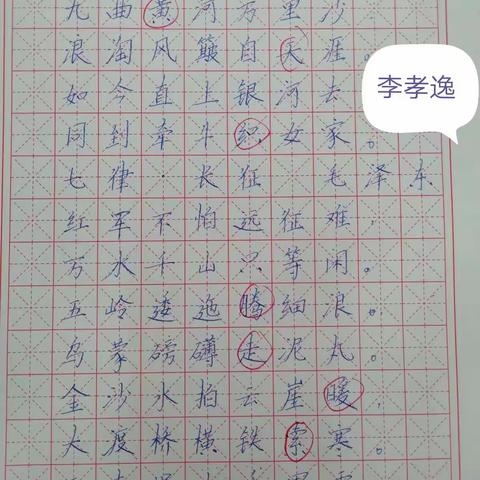 九曲黄河万里沙
浪淘风簸自天涯。
李孝逸
如今直上银河去
同到牵牛织女家。
七律·长征 毛泽东
红军不怕远征难,
万水千山只等闲。
五岭逶迤腾细浪。
乌蒙磅礴走泥丸。
金沙水拍云崖暖,
大渡桥横铁索寒。